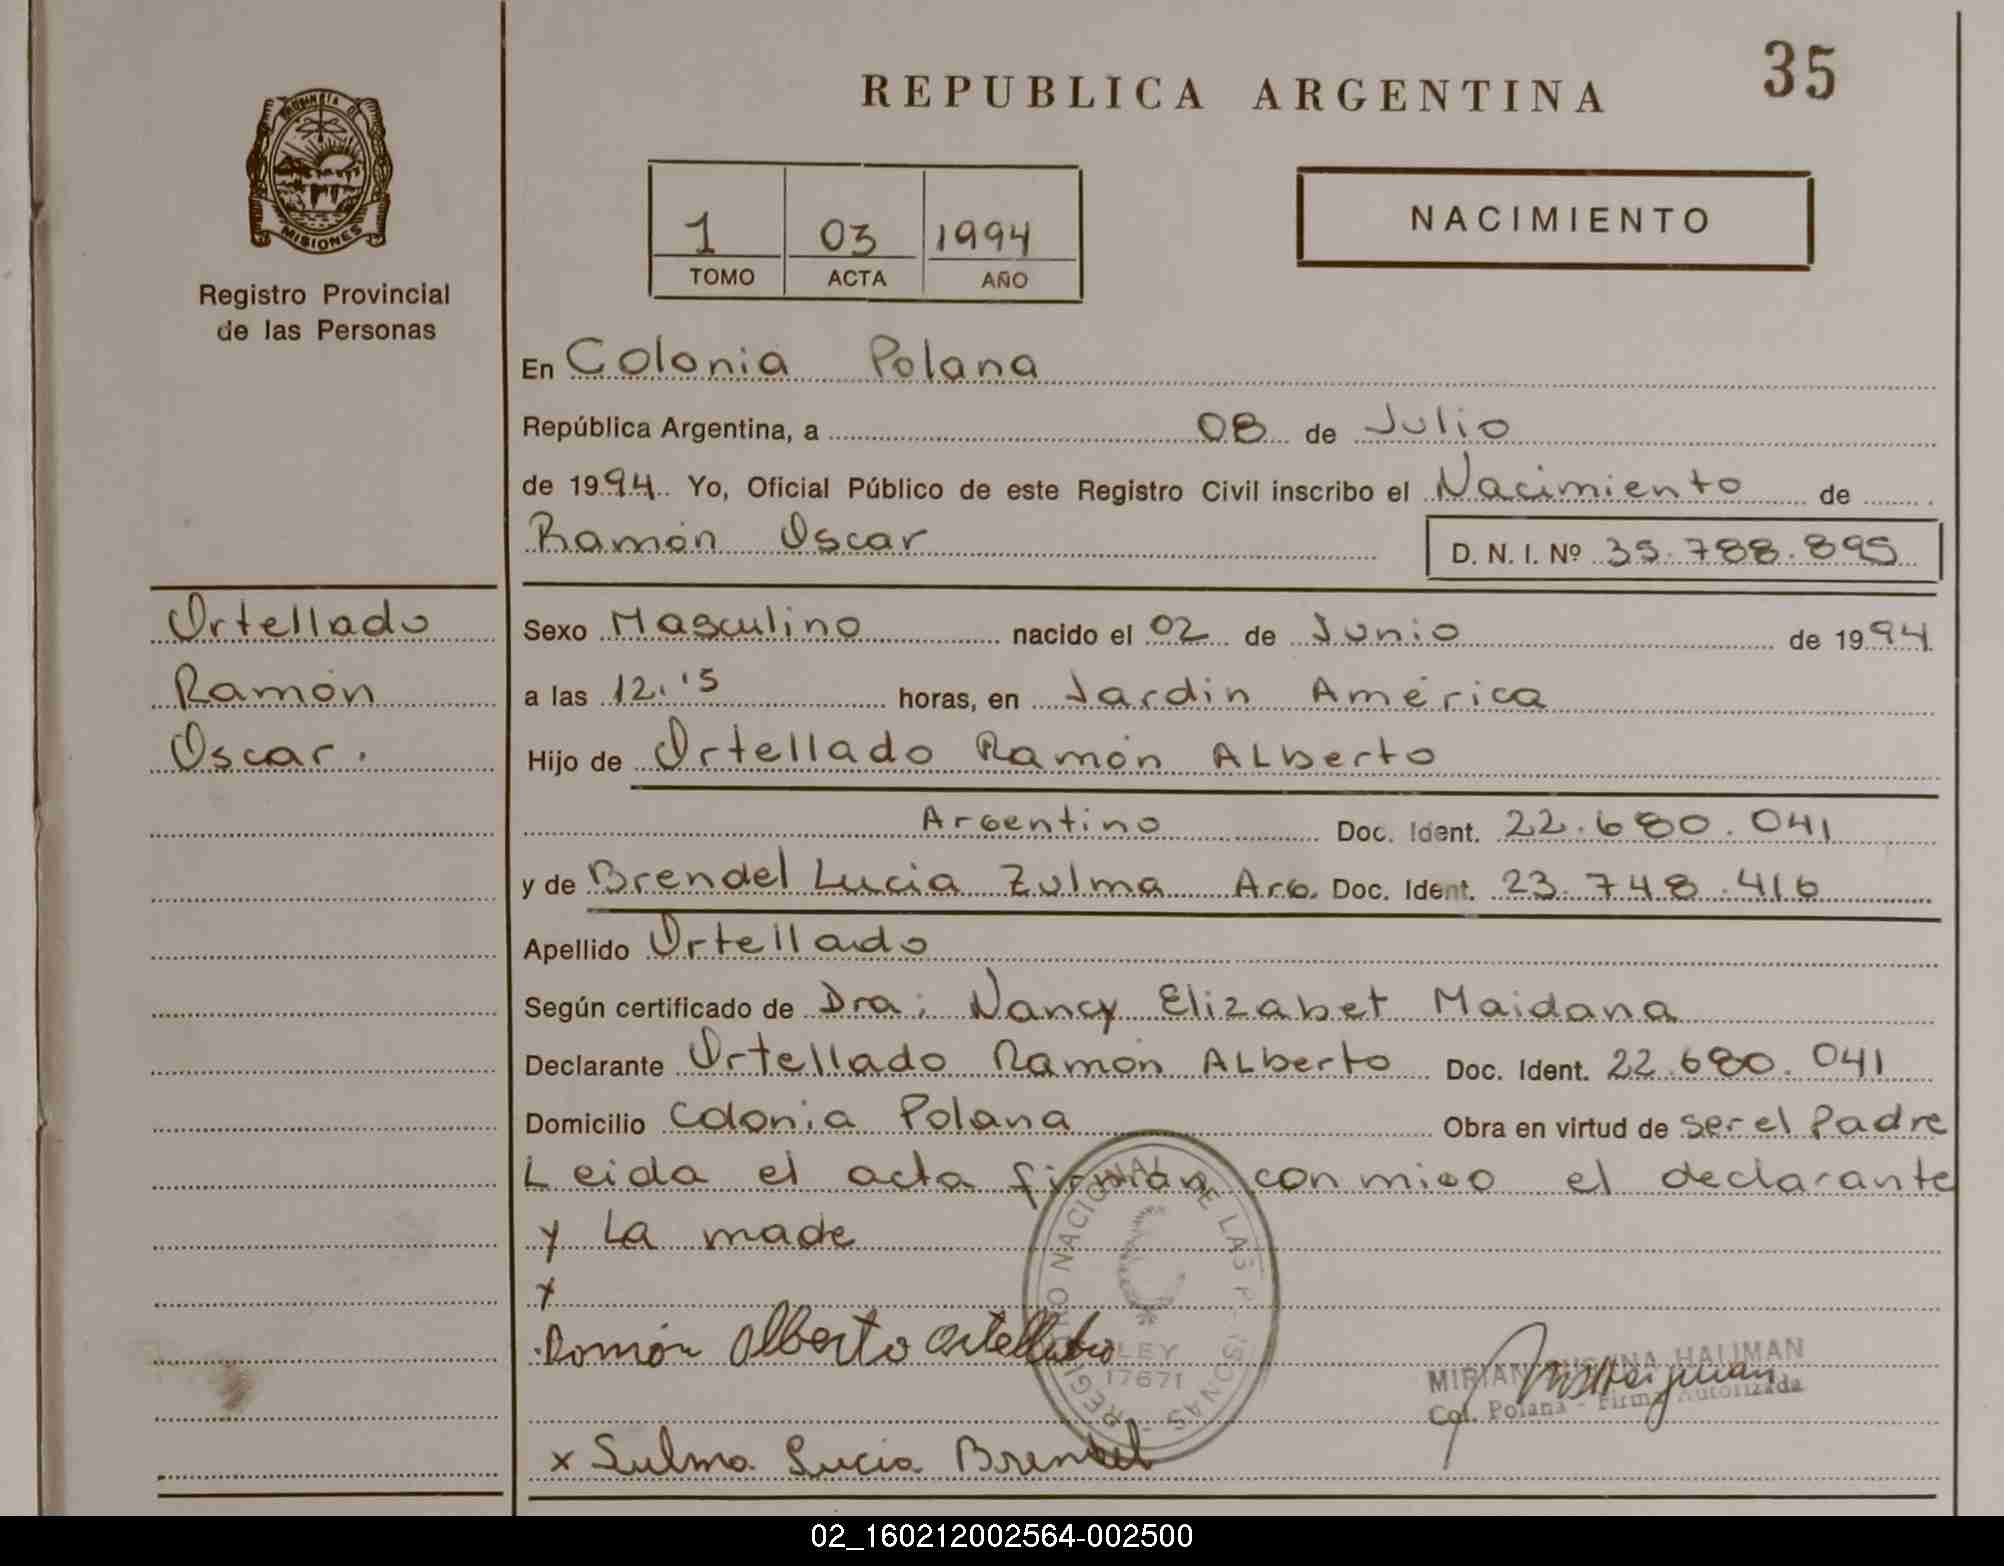 35
REPUBLICA ARGENTINA
PROVINCIA DE
MISIONES
Registro Provincial
de las Personas
1 03 1994
TOMO ACTA AÑO
NACIMIENTO
En Colonia Polana
República Argentina, a 08 de Julio
de 1994 Yo, Oficial Público de este Registro Civil inscribo el Nacimiento de
Ramón Oscar D. N. I. Nº 35.788.895
Ortellado
Ramón
Oscar.
Sexo Masculino nacido el 02 de Junio de 1994
a las 12,15 horas, en Jardin América
Hijo de Ortellado Ramón ALberto
Argentino Doc. Ident. 22.680.041
y de Brendel Lucia Zulma Arg. Doc. Ident. 23.748.416
Apellido Ortellado
Según certificado de Dra; Nancy Elizabet Maidana
Declarante Ortellado Ramón ALberto Doc. Ident. 22.680.041
Domicilio Colonia Polana Obra en virtud de ser el Padre
Leida el acta firman conmigo el declarante
y La made
x
Ramón Alberto Ortellado
x Sulma Lucia Brendel
REGISTRO NACIONAL DE LAS PERSONAS
LEY
17671
MIRIAN SUSANA HALIMAN
Col. Polana - Firma Autorizada
02_160212002564-002500